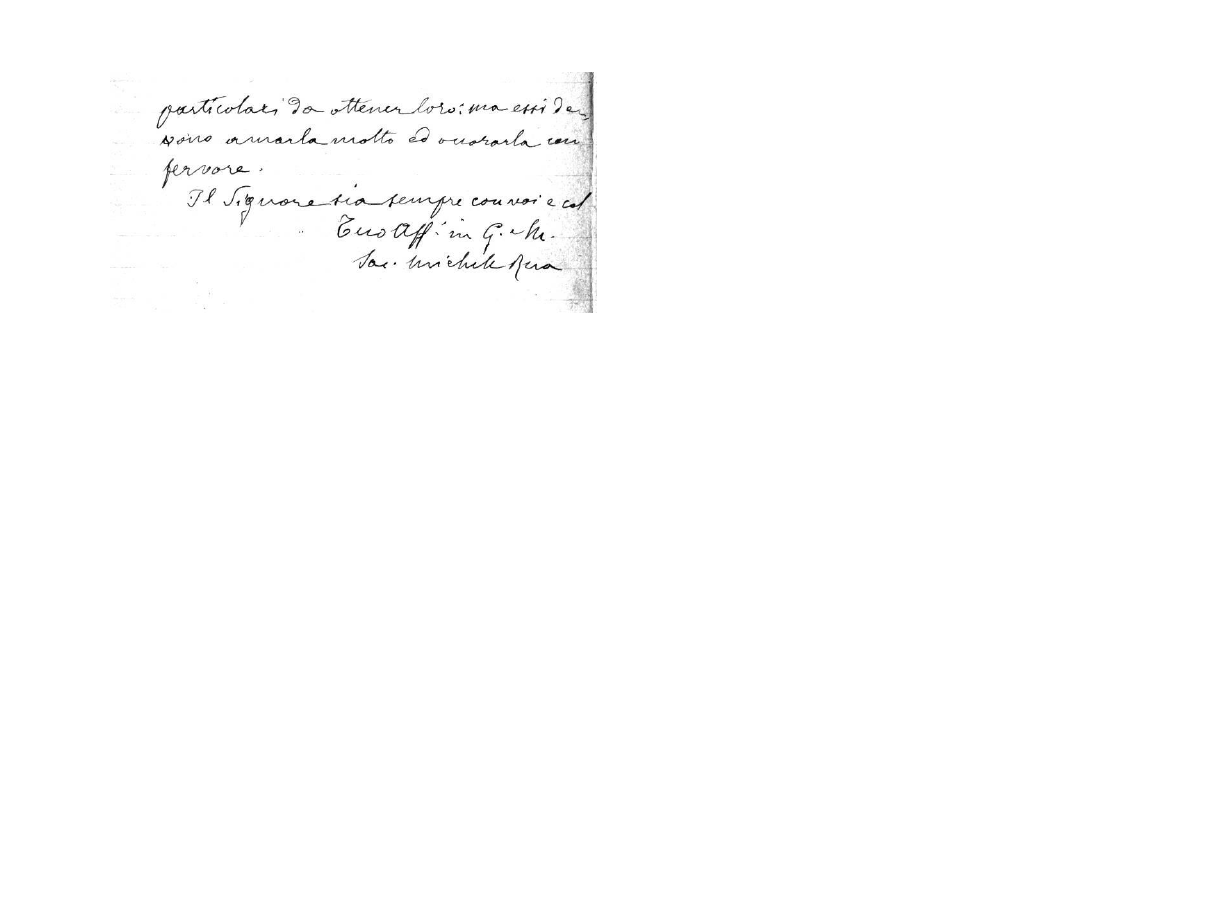 particolari da ottener loro: ma essi deb
bono amarla molto ed onorarla con
fervore.
Il Signore sia sempre con voi e col
Tuo Aff. in G. e M.
Sac. Michele Rua